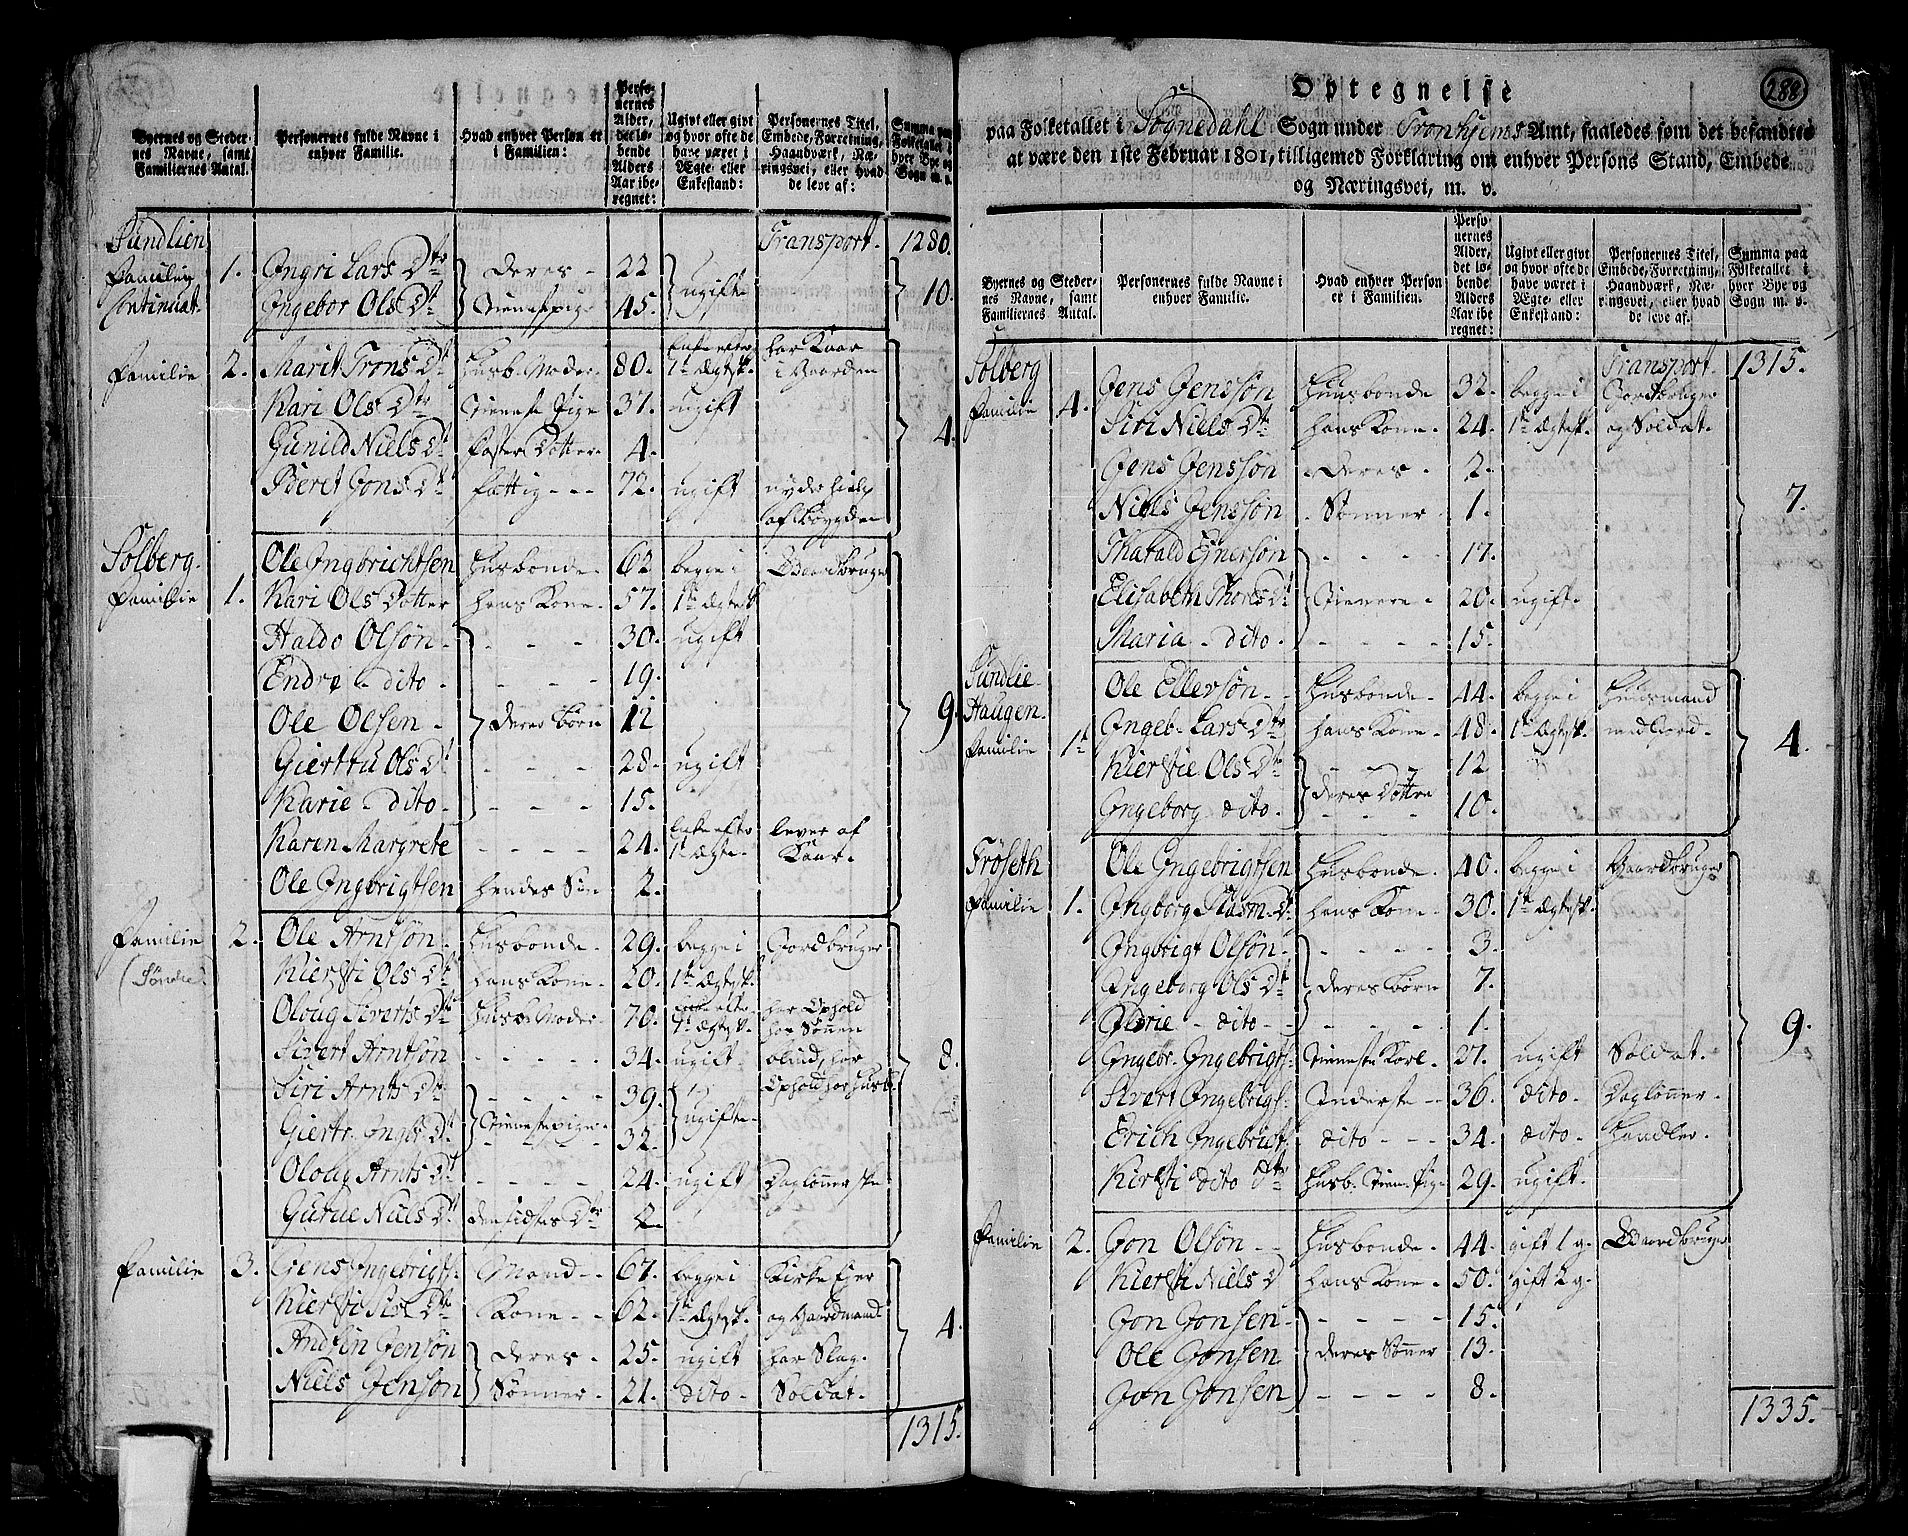 Byernes og Steder- nes Navne, samt Familiernes Antal. | Personernes fulde Navne i enhver Familie. | Hvad enhver Person er i Familien: | Perso- nernes Alder, det lø- bende Alders Aar ibe- regnet: | Ugivt eller givt og hvor ofte de have været i Ægte- eller Enkestand: | Personernes Titel, Embede, Forretning, Haandværk, Næ- ringsvei, eller hvad de leve af: | Summa paa Folketallet i hver Bye og Sogn m. v.
Sundlien Transport. 1280.
Familien 1. Ingri Lars Dtr deres - 22 ugifte 10.
Continuat. Ingebor Ols Dt Tienestepig. 45.
Familie 2. Marit Trons Dt Husb. Moder. 80. Enke efter 1te Ægtesk. har Kaar i Gaarden 4.
Kari Ols Dtr Tieneste Pige 37. ugift
Gunild Niels Dt foster Dotter. 4.
Beret Jons Dt fattig - - - 72. ugift nyder hielp af Bøygden
Solberg. Ole Ingbrichtsen Husbonde. 62 begge i Gaardbruger 9.
Familie 1. Kari Ols Dotter hans Kone. 57. 1te Ægtesk
Haldo Olsøn - - - - 30. ugift
Endre - dito - - - - 19.
Ole Olsen - deres Børn 12
Giertru Ols Dt - - - 28. ugift
Karie - dito - - - - 15.
Karen Margrete - - - - 24. Enke efter 1te Ægte. lever af Kaar.
Ole Ingbrigtsen hendes Søn 2.
Familie 2. Ole Arntsøn. Husbonde. 29. begge i Jordbruger 8.
Kiersti Ols Dt hans Kone. 20. 1te Ægtesk.
Oloug Siverts Dtr Husb. Moder. 70. Enke efter 1te Ægtesk. har Ophold hos Sønnen
Sivert Arntsøn - - - - - 34. ugift. blind, har
Siri Arnts Dtr - - - - 39. ugifte Ophold hos Husb.
Giertr. Ingbr Dt Tienestepige. 32.
Oloug Arnts Dt - - - - 24. ugift Daglønnerske
Gurue Niels Dt den sidstes Dtr 2
Familie 3. Jens Ingebrigts: Mand - - 67. begge i Kirke Ejer 4.
Kiersti Siv. Dtr Kone - - 62. 1te Ægtesk. og Gaardmand
Andsin Jensøn deres - 25. ugift har Skag.
Niels Jensøn Sønner - 21. dito - Soldat.
1315.
288
Optegnelse
paa Folketallet i Sognedahl Sogn under Tronhjems Amt, saaledes som det befandtes
at være den 1ste Februar 1801, tilligemed Forklaring om enhver Persons Stand, Embede
og Næringsvei, m. v.
Byernes og Steder- nes Navne, samt Familiernes Antal. | Personernes fulde Navne i enhver Familie. | Hvad enhver Person er i Familien. | Perso- nernes Alder, det lø- bende Alders Aar ibe- regnet: | Ugivt eller givt og hvor ofte de have været i Ægte- eller Enkestand: | Personernes Titel, Embede, Forretning, Haandværk, Næ- ringsvei, eller hvad de leve af. | Summa paa Folketallet i hver Bye og Sogn m. v.
Solberg Transport. 1315.
Familie 4. Jens Jenssøn Husbonde 32. begge i Jordbruger 7.
Siri Niels Dt hans Kone. 24. 1te Ægtesk. og Soldat.
Jens Jenssøn deres - 2.
Niels Jenssøn Sønner - 1.
Harald Ejnersøn - - - - 17.
Elisabeth Thores Dt Tienere - 20. ugift.
Maria - dito - - - - - 15.
Sundlie- Haugen. Ole Ellersøn - - Husbonde - 44. begge i Huusmand 4.
Familie 1. Ingeb. Lars Dtr hans Kone. 48. 1te Ægtesk. med Jord -
Kierstie Ols Dtr - - - - 12
Ingeborg dito. deres Døttre 10.
Frøseth Ole Ingebrigtsen Husbonde. 40. begge i Gaardbruger 9.
Familie 1. Ingborg Rasm. Dt hans Kone. 30. 1te Ægtesk.
Ingbrigt Olsøn - - - - 3.
Ingeborg Ols Dt deres Børn 7.
- dito - - - - - - 1.
Ingebr. Ingebrigts: Tieneste Karl - 27. ugift Soldat.
Sivert Ingebrigs: Inderste - - 36. dito. Daglønner.
Erich Ingebrigt: dito - - - 34. dito - Handler.
Kiersti dito Dtr Husb. Tiene Pige 29. ugift.
Familie 2. Jon Olsøn - - Husbonde - 44. gift 1 g. Gaardbruger
Kiersti Niels D hans Kone - 50. gift 2 g.
Jon Jonsen - - - - - 15.
Ole Jonsen deres Sønner 13.
Jon Jonsen - - - - 8.
1335.